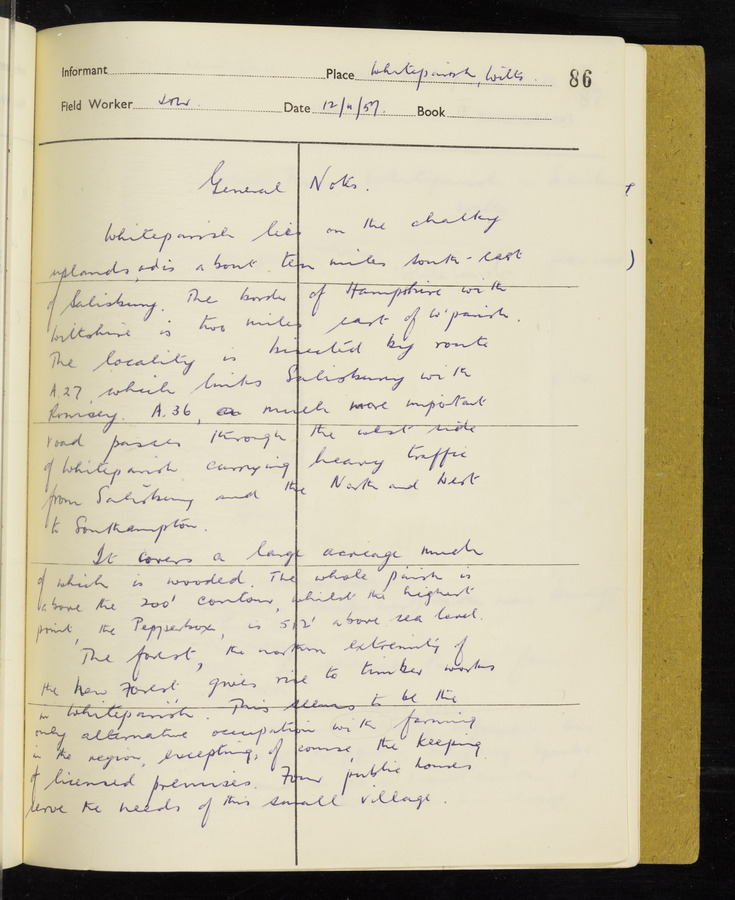 Informant Place Whiteparish, Wilts. 86
Field Worker Date 12/11/57. Book
General Notes.
Whiteparish lies on the chalky
uplands, & is about ten miles south-east
of Salisbury. The border of Hampshire with
Wiltshire is two miles east of W'parish.
The locality is bisected by route
A.27, which links Salisbury with
Romsey. A.36, a much more important
road passes through the west side
of Whiteparish carrying heavy traffic
from Salisbury and the North and West
to Southampton.
It covers a large acreage much
of which is wooded. The whole parish is
above the 200' contour, whilst the highest
point, the Pepperbox, is 512' above sea level.
The forest, the northern extremity of
the New Forest gives rise to timber works
in Whiteparish. This seems to be the
only alternative occupation with farming
in the region, excepting, of course, the keeping
of licensed premises. Four public houses
serve the needs of this small village.